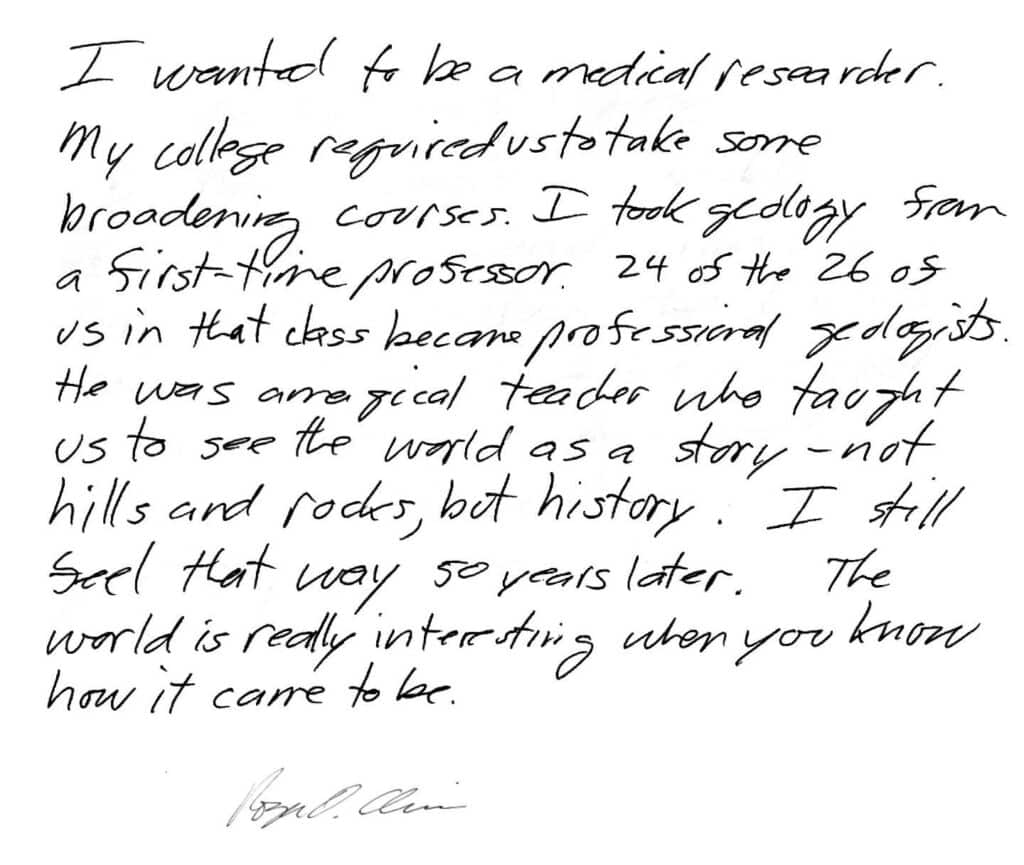 I wanted to be a medical researcher.
My college required us to take some
broadening courses. I took geology from
a first-time professor. 24 of the 26 of
us in that class became professional geologists.
He was a magical teacher who taught
us to see the world as a story - not
hills and rocks, but history. I still
feel that way 50 years later. The
world is really interesting when you know
how it came to be.